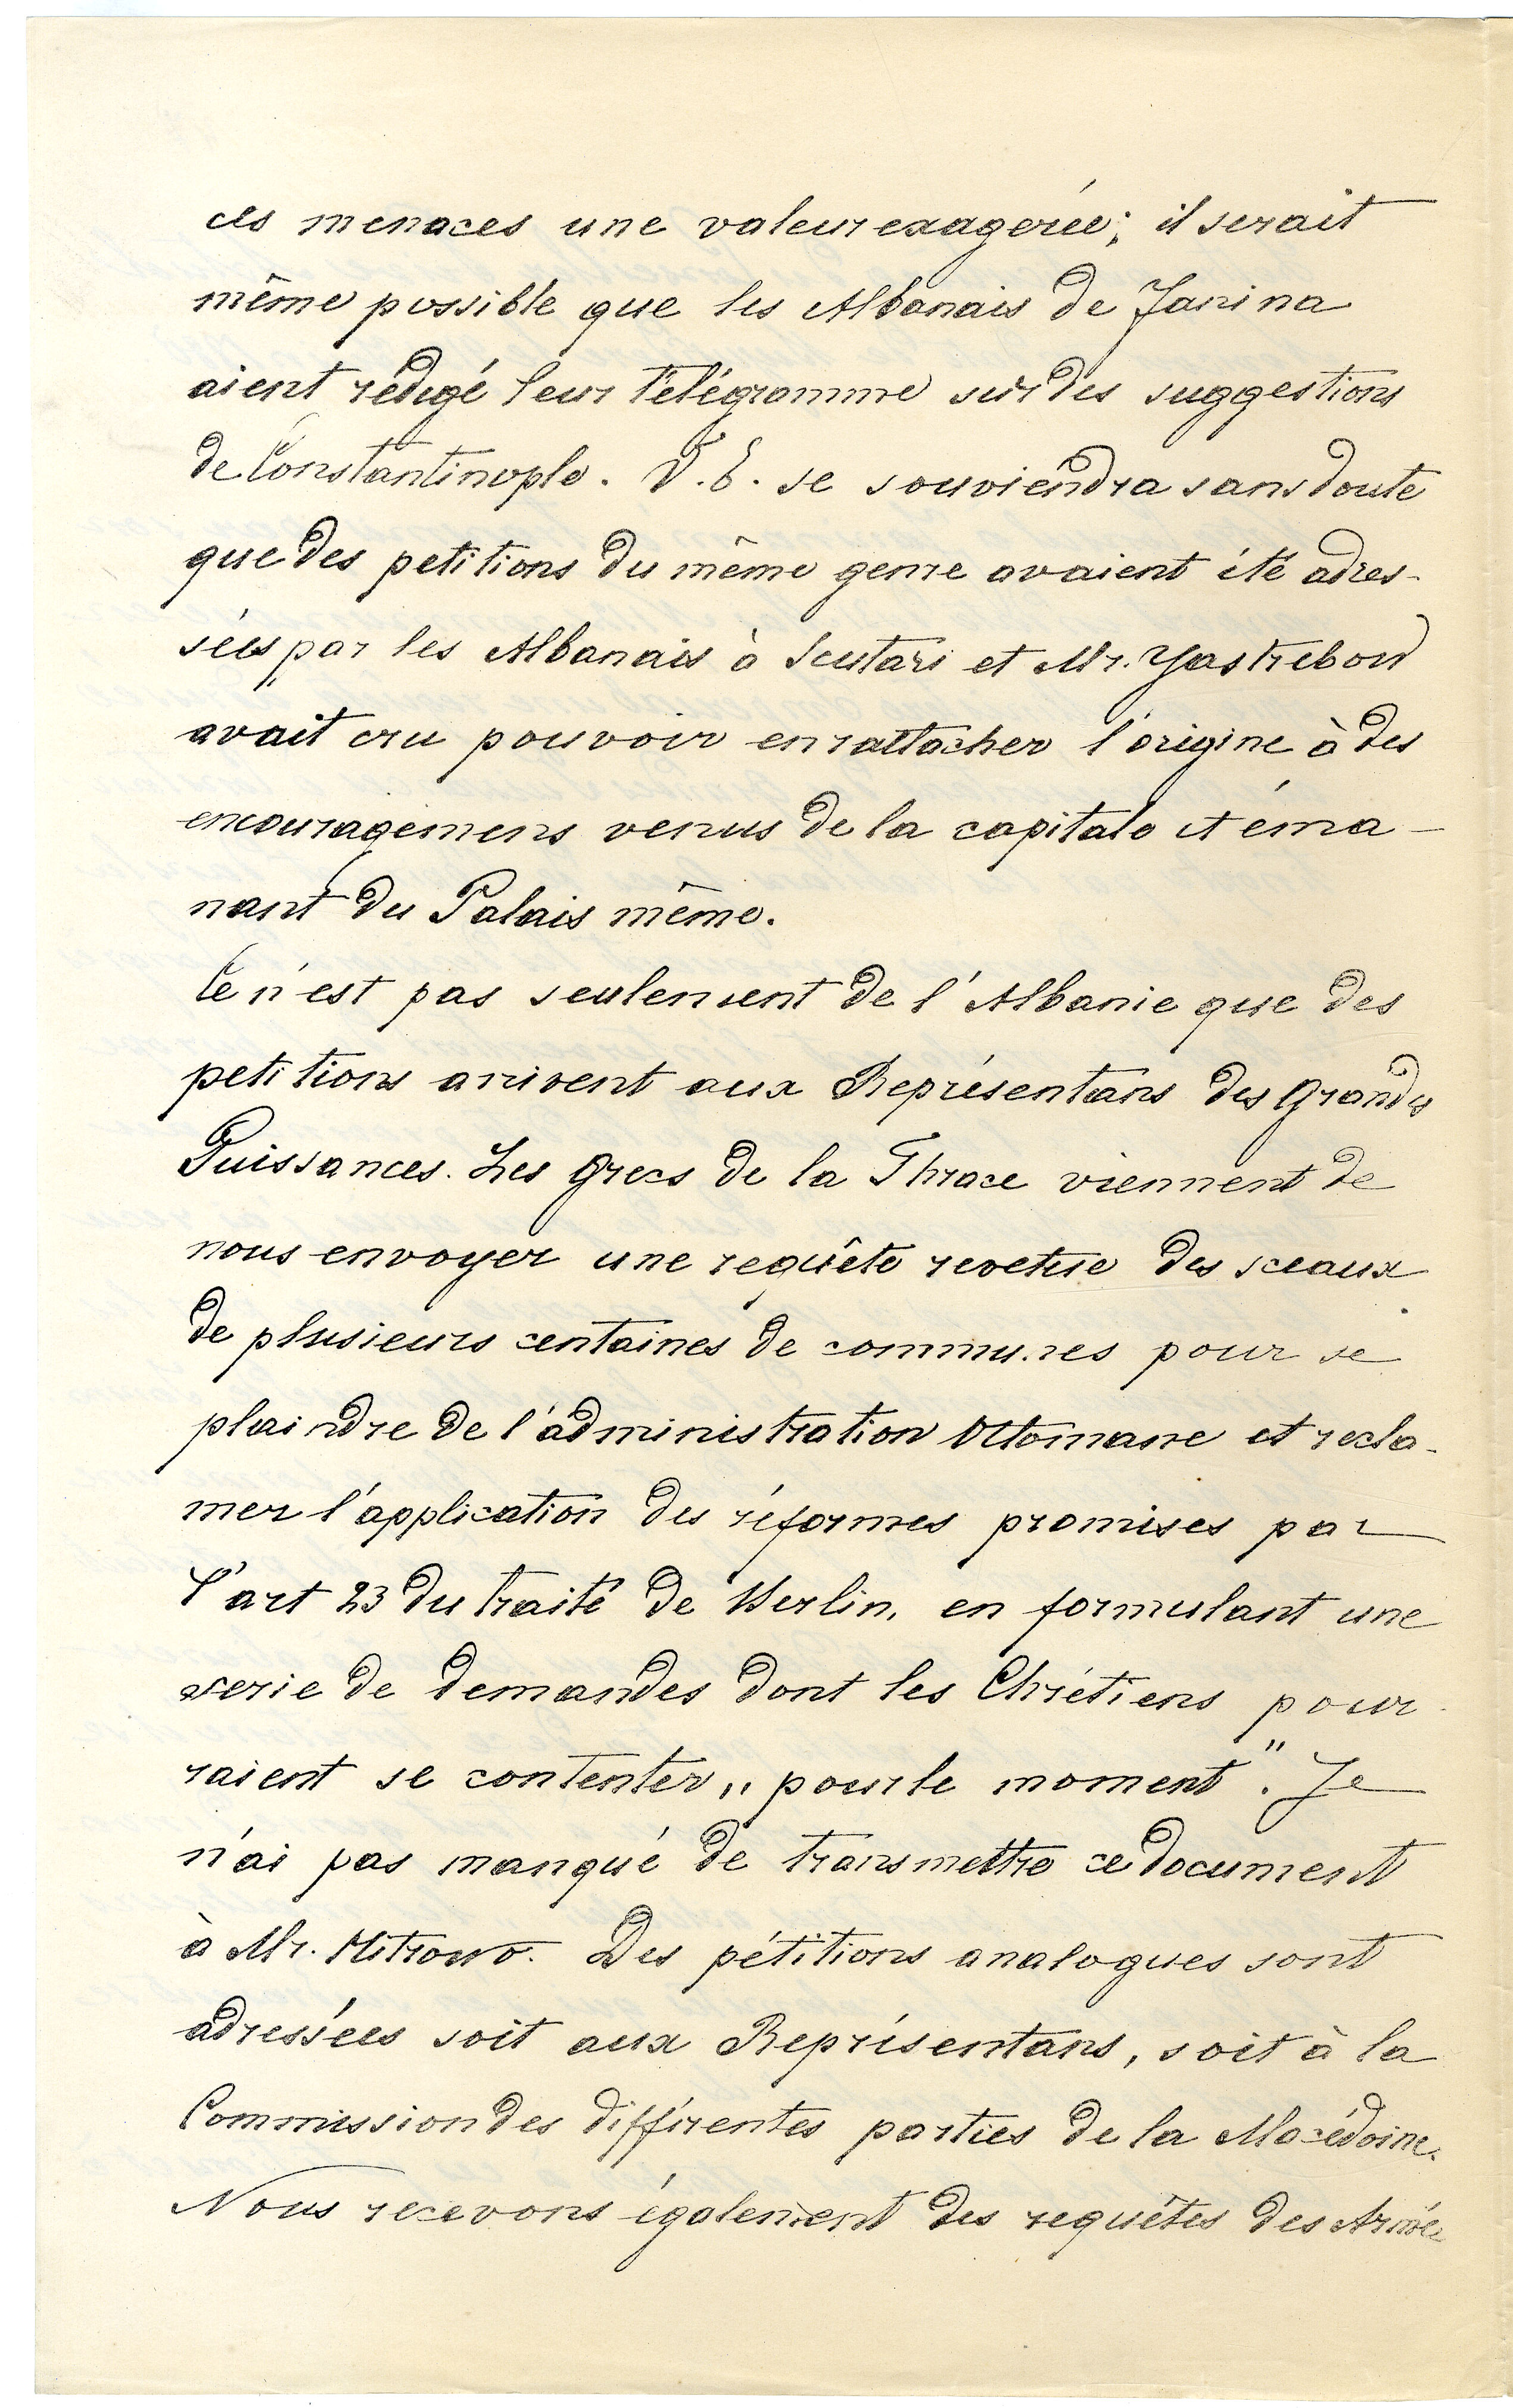 ces menaces une valeur exagerée; il serait
même possible que les Albanais de Janina
aient rédigé leur télégramme sur des suggestions
de Constantinople. V. E. se souviendra sans doute
que des petitions du même genre avaient été adres-
sées par les Albanais à Scutari et Mr. Yastrebow
avait cru pouvoir en rattacher l'origine à des
encouragemens venus de la capitale et éma-
nant du Palais même.
Ce n'est pas seulement de l'Albanie que des
petitions arrivent aux Représentans des Grandes
Puissances. Les Grecs de la Thrace viennent de
nous envoyer une requête revetue des sceaux
de plusieurs centaines de communes pour se
plaindre de l'administration Ottomane et recla-
mer l'application des réformes promises par
l'art 23 du traité de Berlin, en formulant une
serie de demandes dont les Chrétiens pour-
raient se contenter „pour le moment". Je
n'ai pas manqué de transmettre ce document
à Mr. Hitrowo. Des pétitions analogues sont
adressées soit aux Représentans, soit à la
Commission des différentes parties de la Macédoine.
Nous recevons également des requêtes des Armé